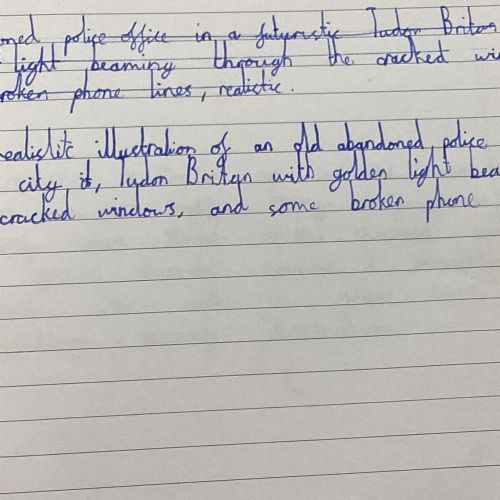 oned police office in a futuristic Tudor Britan
light beaming through the cracked wi
roken phone lines, realistic.
ealistic illustration of an old abandoned police
city it, Tudon Britan with golden light bea
cracked windows, and some broken phone